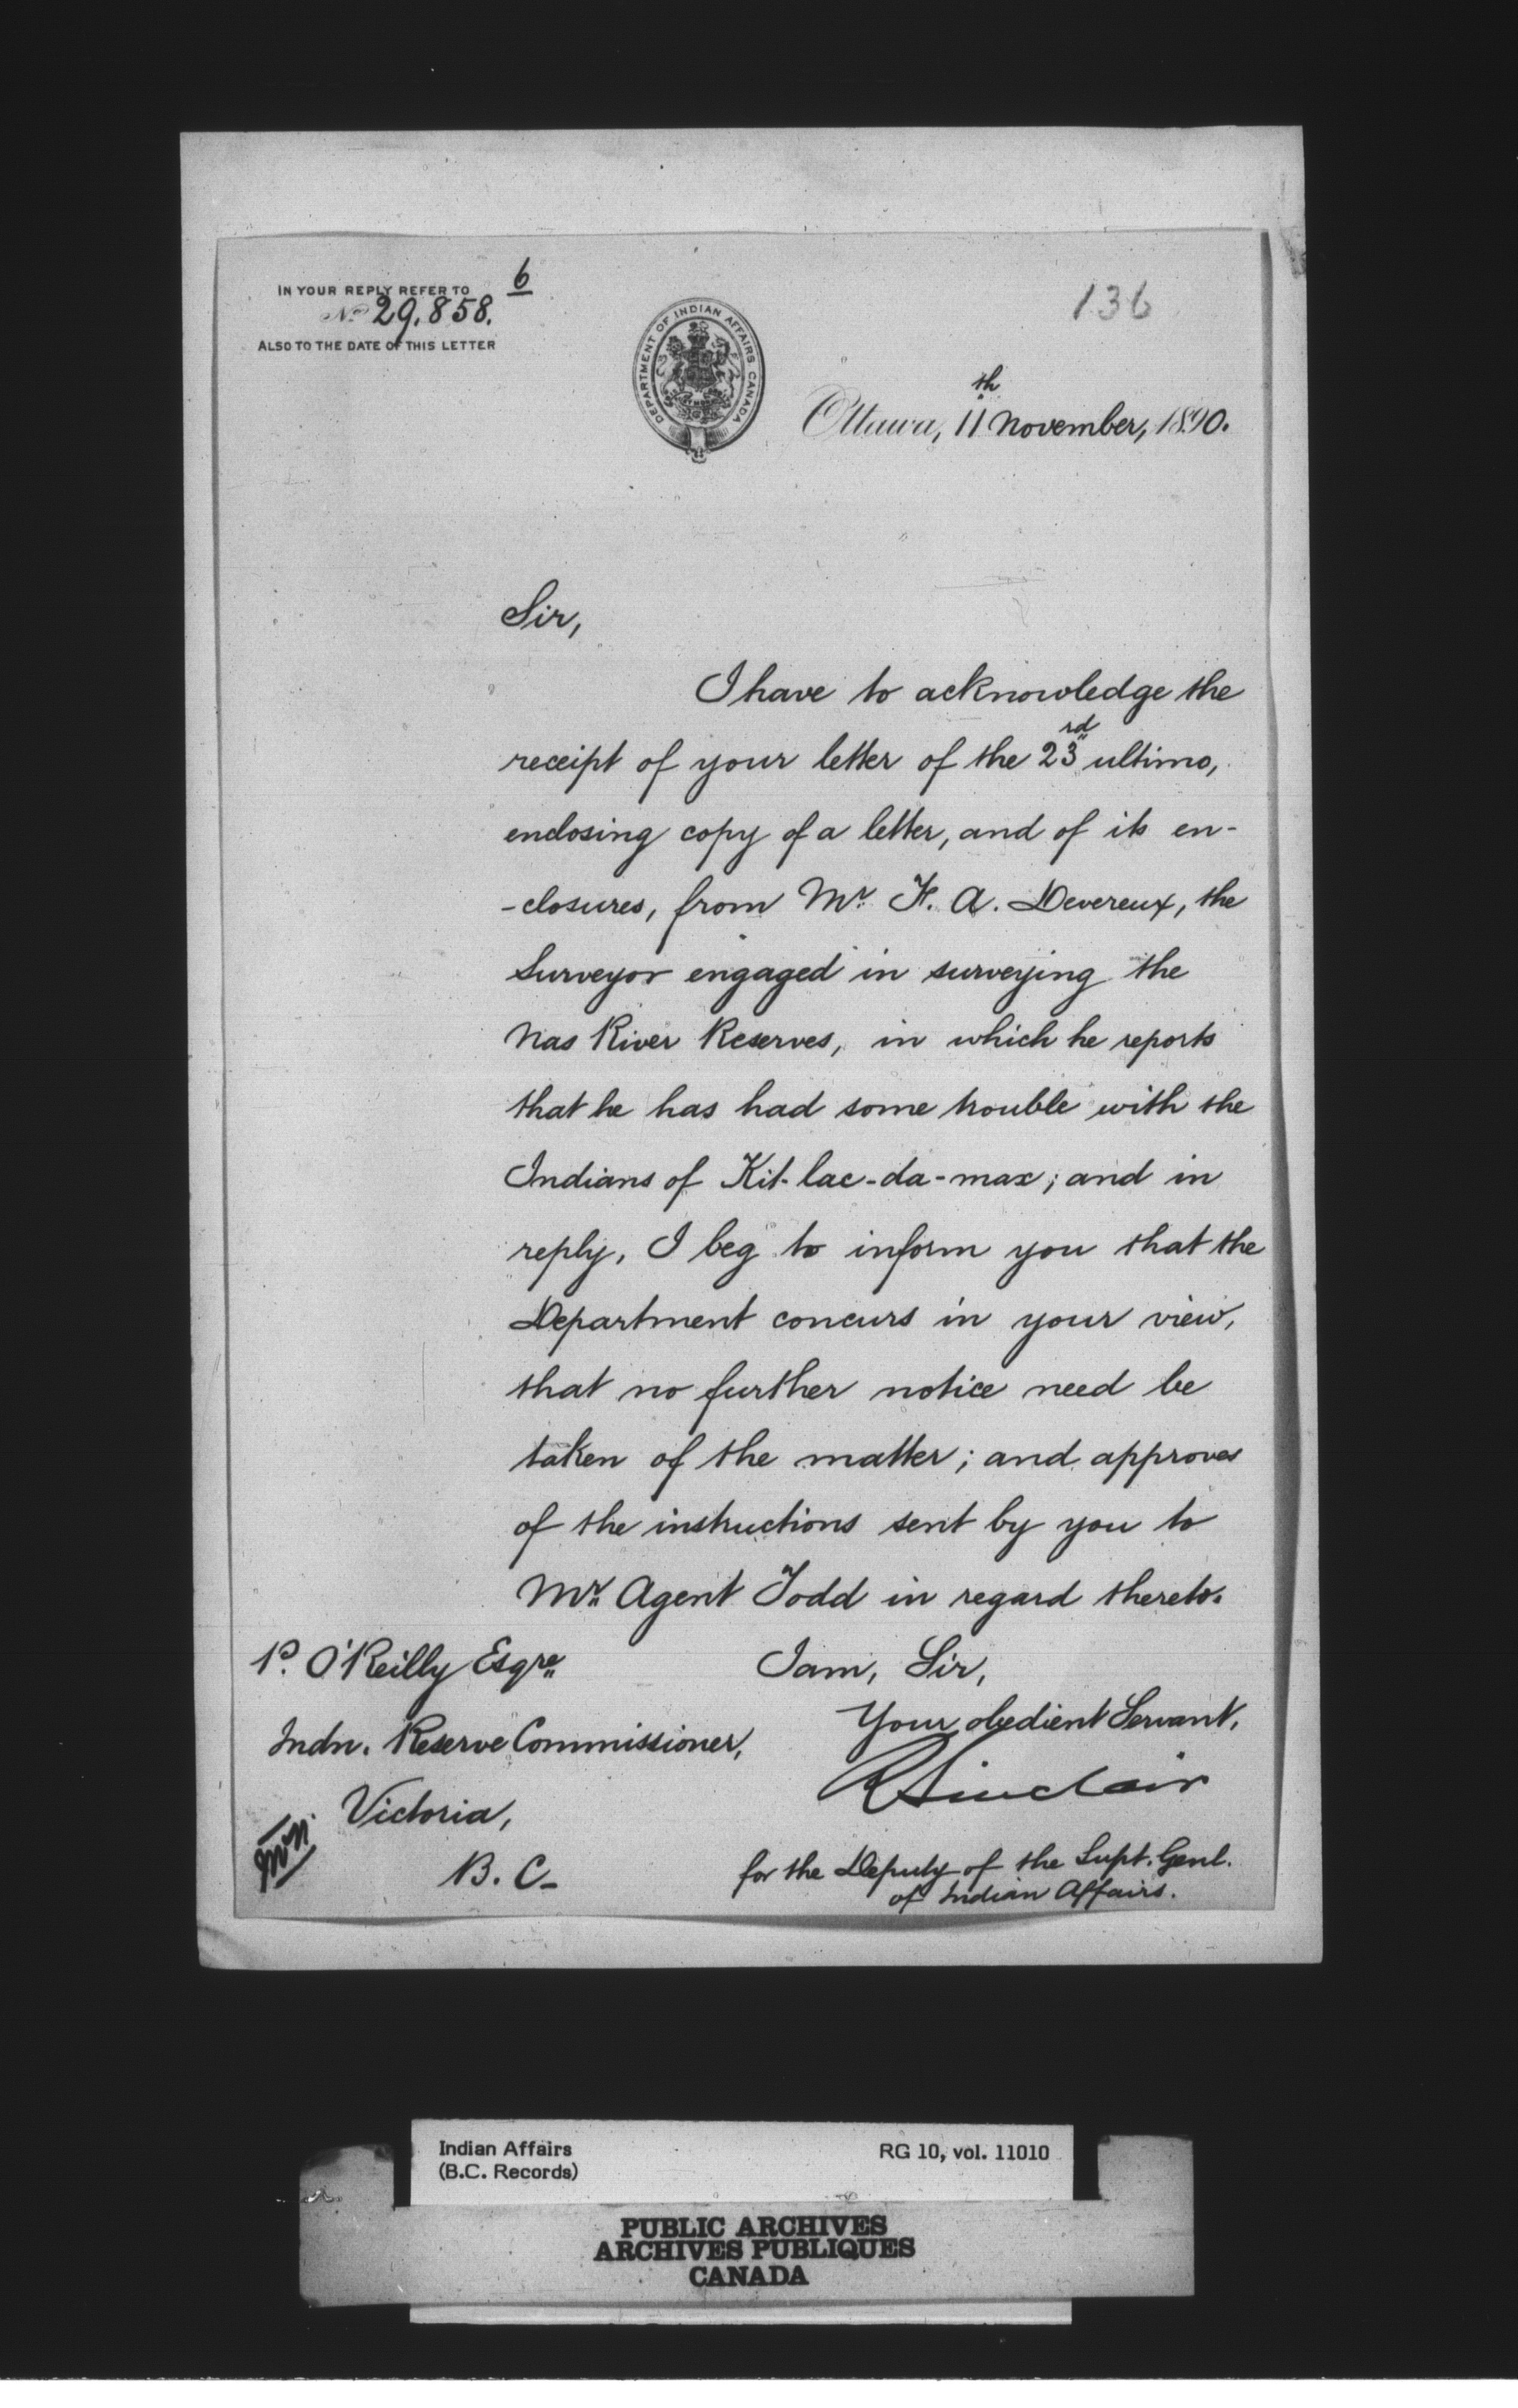 IN YOUR REPLY REFER TO
No 29,858. 6
ALSO TO THE DATE OF THIS LETTER
DEPARTMENT OF INDIAN AFFAIRS CANADA
136
Ottawa, 11th November, 1890.
Sir,
I have to acknowledge the
receipt of your letter of the 23rd ultimo,
enclosing copy of a letter, and of its en-
-closures, from Mr. F. A. Devereux, the
Surveyor engaged in surveying the
Nas River Reserves, in which he reports
that he has had some trouble with the
Indians of Kit-lac-da-max; and in
reply, I beg to inform you that the
Department concurs in your view,
that no further notice need be
taken of the matter; and approves
of the instructions sent by you to
Mr. Agent Todd in regard thereto.
I am, Sir,
Your obedient Servant,
R Sinclair
for the Deputy of the Supt. Genl.
of Indian Affairs.
P. O'Reilly Esqre
Indn. Reserve Commissioner,
Victoria,
B.C.
Indian Affairs
(B.C. Records)
RG 10, vol. 11010
PUBLIC ARCHIVES
ARCHIVES PUBLIQUES
CANADA